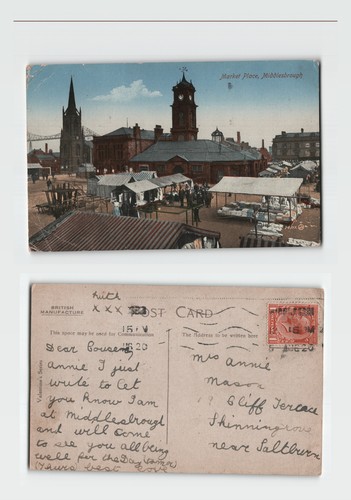 Market Place, Middlesbrough
BRITISH
MANUFACTURE
POST CARD
This space may be used for Communication
The Address to be written here
Valentine's Series
Ruth
xxx
15 V
20
Dear Cousen
annie I just
write to let
you know I am
at Middlesbrough
and will come
to see you all being
well for the Day
yours best love
Mrs Annie
Mason
Cliff Terrace
Shinningrove
near Saltburn